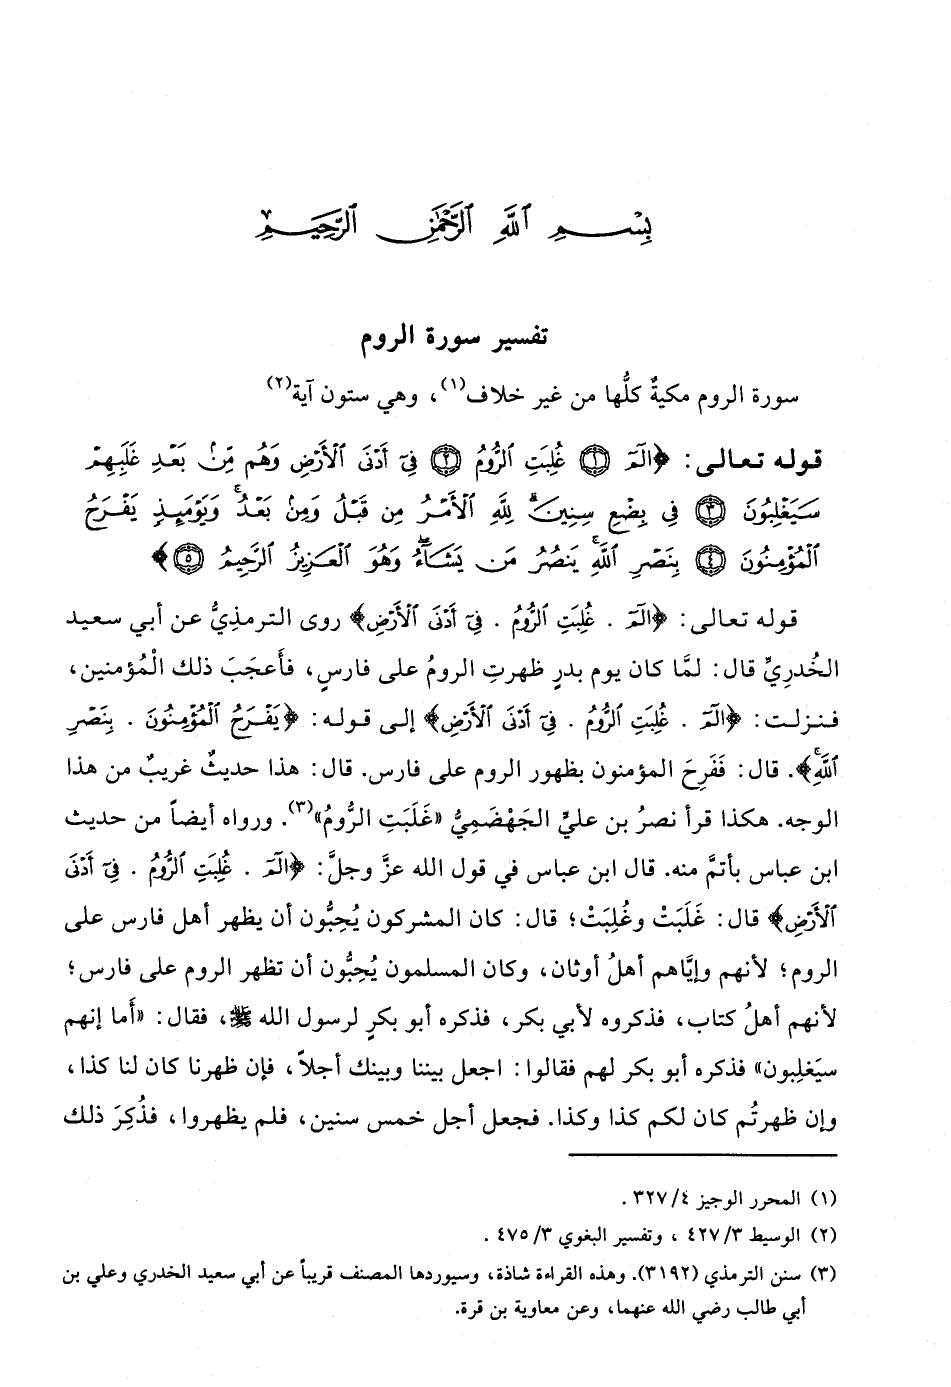 بِسْمِ ٱللَّهِ ٱلرَّحْمَٰنِ ٱلرَّحِيمِ
تفسير سورة الروم
سورة الروم مكيةٌ كلُّها من غير خلاف(١)، وهي ستون آية(٢)
قوله تعالى: ﴿الٓمٓ ۝١ غُلِبَتِ ٱلرُّومُ ۝٢ فِىٓ أَدْنَى ٱلْأَرْضِ وَهُم مِّنۢ بَعْدِ غَلَبِهِمْ
سَيَغْلِبُونَ ۝٣ فِى بِضْعِ سِنِينَ ۗ لِلَّهِ ٱلْأَمْرُ مِن قَبْلُ وَمِنۢ بَعْدُ ۚ وَيَوْمَئِذٍ يَفْرَحُ
ٱلْمُؤْمِنُونَ ۝٤ بِنَصْرِ ٱللَّهِ ۚ يَنصُرُ مَن يَشَآءُ ۖ وَهُوَ ٱلْعَزِيزُ ٱلرَّحِيمُ ۝٥﴾
قوله تعالى: ﴿الٓمٓ . غُلِبَتِ ٱلرُّومُ . فِىٓ أَدْنَى ٱلْأَرْضِ﴾ روى الترمذِيُّ عن أبي سعيد
الخُدرِيِّ قال: لمَّا كان يوم بدرٍ ظهرتِ الرومُ على فارسٍ، فأَعجَبَ ذلك الْمُؤمنين،
فنزلت: ﴿الٓمٓ . غُلِبَتِ ٱلرُّومُ . فِىٓ أَدْنَى ٱلْأَرْضِ﴾ إلى قوله: ﴿يَفْرَحُ ٱلْمُؤْمِنُونَ . بِنَصْرِ
ٱللَّهِ ۚ﴾. قال: فَفَرِحَ المؤمنون بظهور الروم على فارس. قال: هذا حديثٌ غريبٌ من هذا
الوجه. هكذا قرأ نصرُ بن عليٍّ الجَهْضَمِيُّ «غَلَبَتِ الرُّومُ»(٣). ورواه أيضاً من حديث
ابن عباس بأتمَّ منه. قال ابن عباس في قول الله عزَّ وجلَّ: ﴿الٓمٓ . غُلِبَتِ ٱلرُّومُ . فِىٓ أَدْنَى
ٱلْأَرْضِ﴾ قال: غَلَبَتْ وغُلِبَتْ؛ قال: كان المشركون يُحِبُّون أن يظهر أهل فارس على
الروم؛ لأنهم وإيَّاهم أهلُ أوثان، وكان المسلمون يُحِبُّون أن تظهر الروم على فارس؛
لأنهم أهلُ كتاب، فذكروه لأبي بكر، فذكره أبو بكرٍ لرسول الله ﷺ، فقال: «أَما إنهم
سيَغلِبون» فذكره أبو بكر لهم فقالوا: اجعل بيننا وبينك أجلاً، فإن ظهرنا كان لنا كذا،
وإن ظهرتُم كان لكم كذا وكذا. فجعل أجل خمس سنين، فلم يظهروا، فذُكِرَ ذلك
(١) المحرر الوجيز ٤/٣٢٧ .
(٢) الوسيط ٣/٤٢٧ ، وتفسير البغوي ٣/٤٧٥ .
(٣) سنن الترمذي (٣١٩٢). وهذه القراءة شاذة، وسيوردها المصنف قريباً عن أبي سعيد الخدري وعلي بن
أبي طالب رضي الله عنهما، وعن معاوية بن قرة.